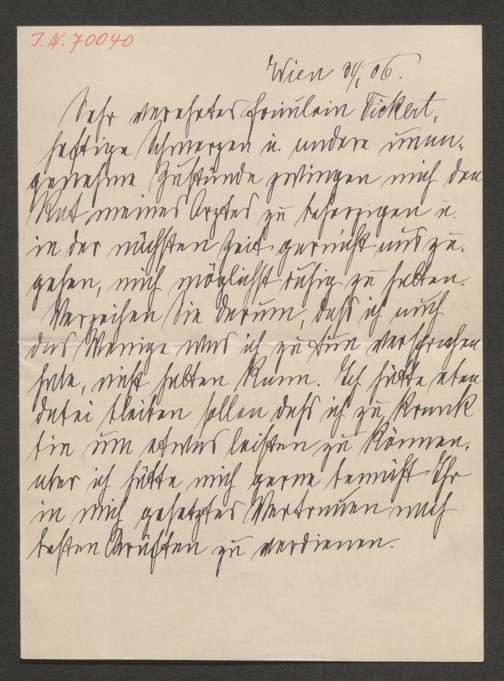 J.N. 70040
Wien /06.
Sehr verehrtes Fräulein Tickert,
heftige Schmerzen u. andere unan-
genehme Zustände zwingen mich den
Rat meines Arztes zu beherzigen u.
in der nächsten Zeit gar nicht auszu-
gehen, mich möglichst ruhig zu halten.
Verzeihen Sie darum, dass ich auch
das Wenige was ich zu tun versprochen
habe, nicht halten kann. Ich hätte eben
dabei bleiben sollen dass ich zu krank
bin um etwas leisten zu können,
aber ich hätte mich gerne bemüht Ihr
in mich gesetztes Vertrauen nach
besten Kräften zu verdienen.